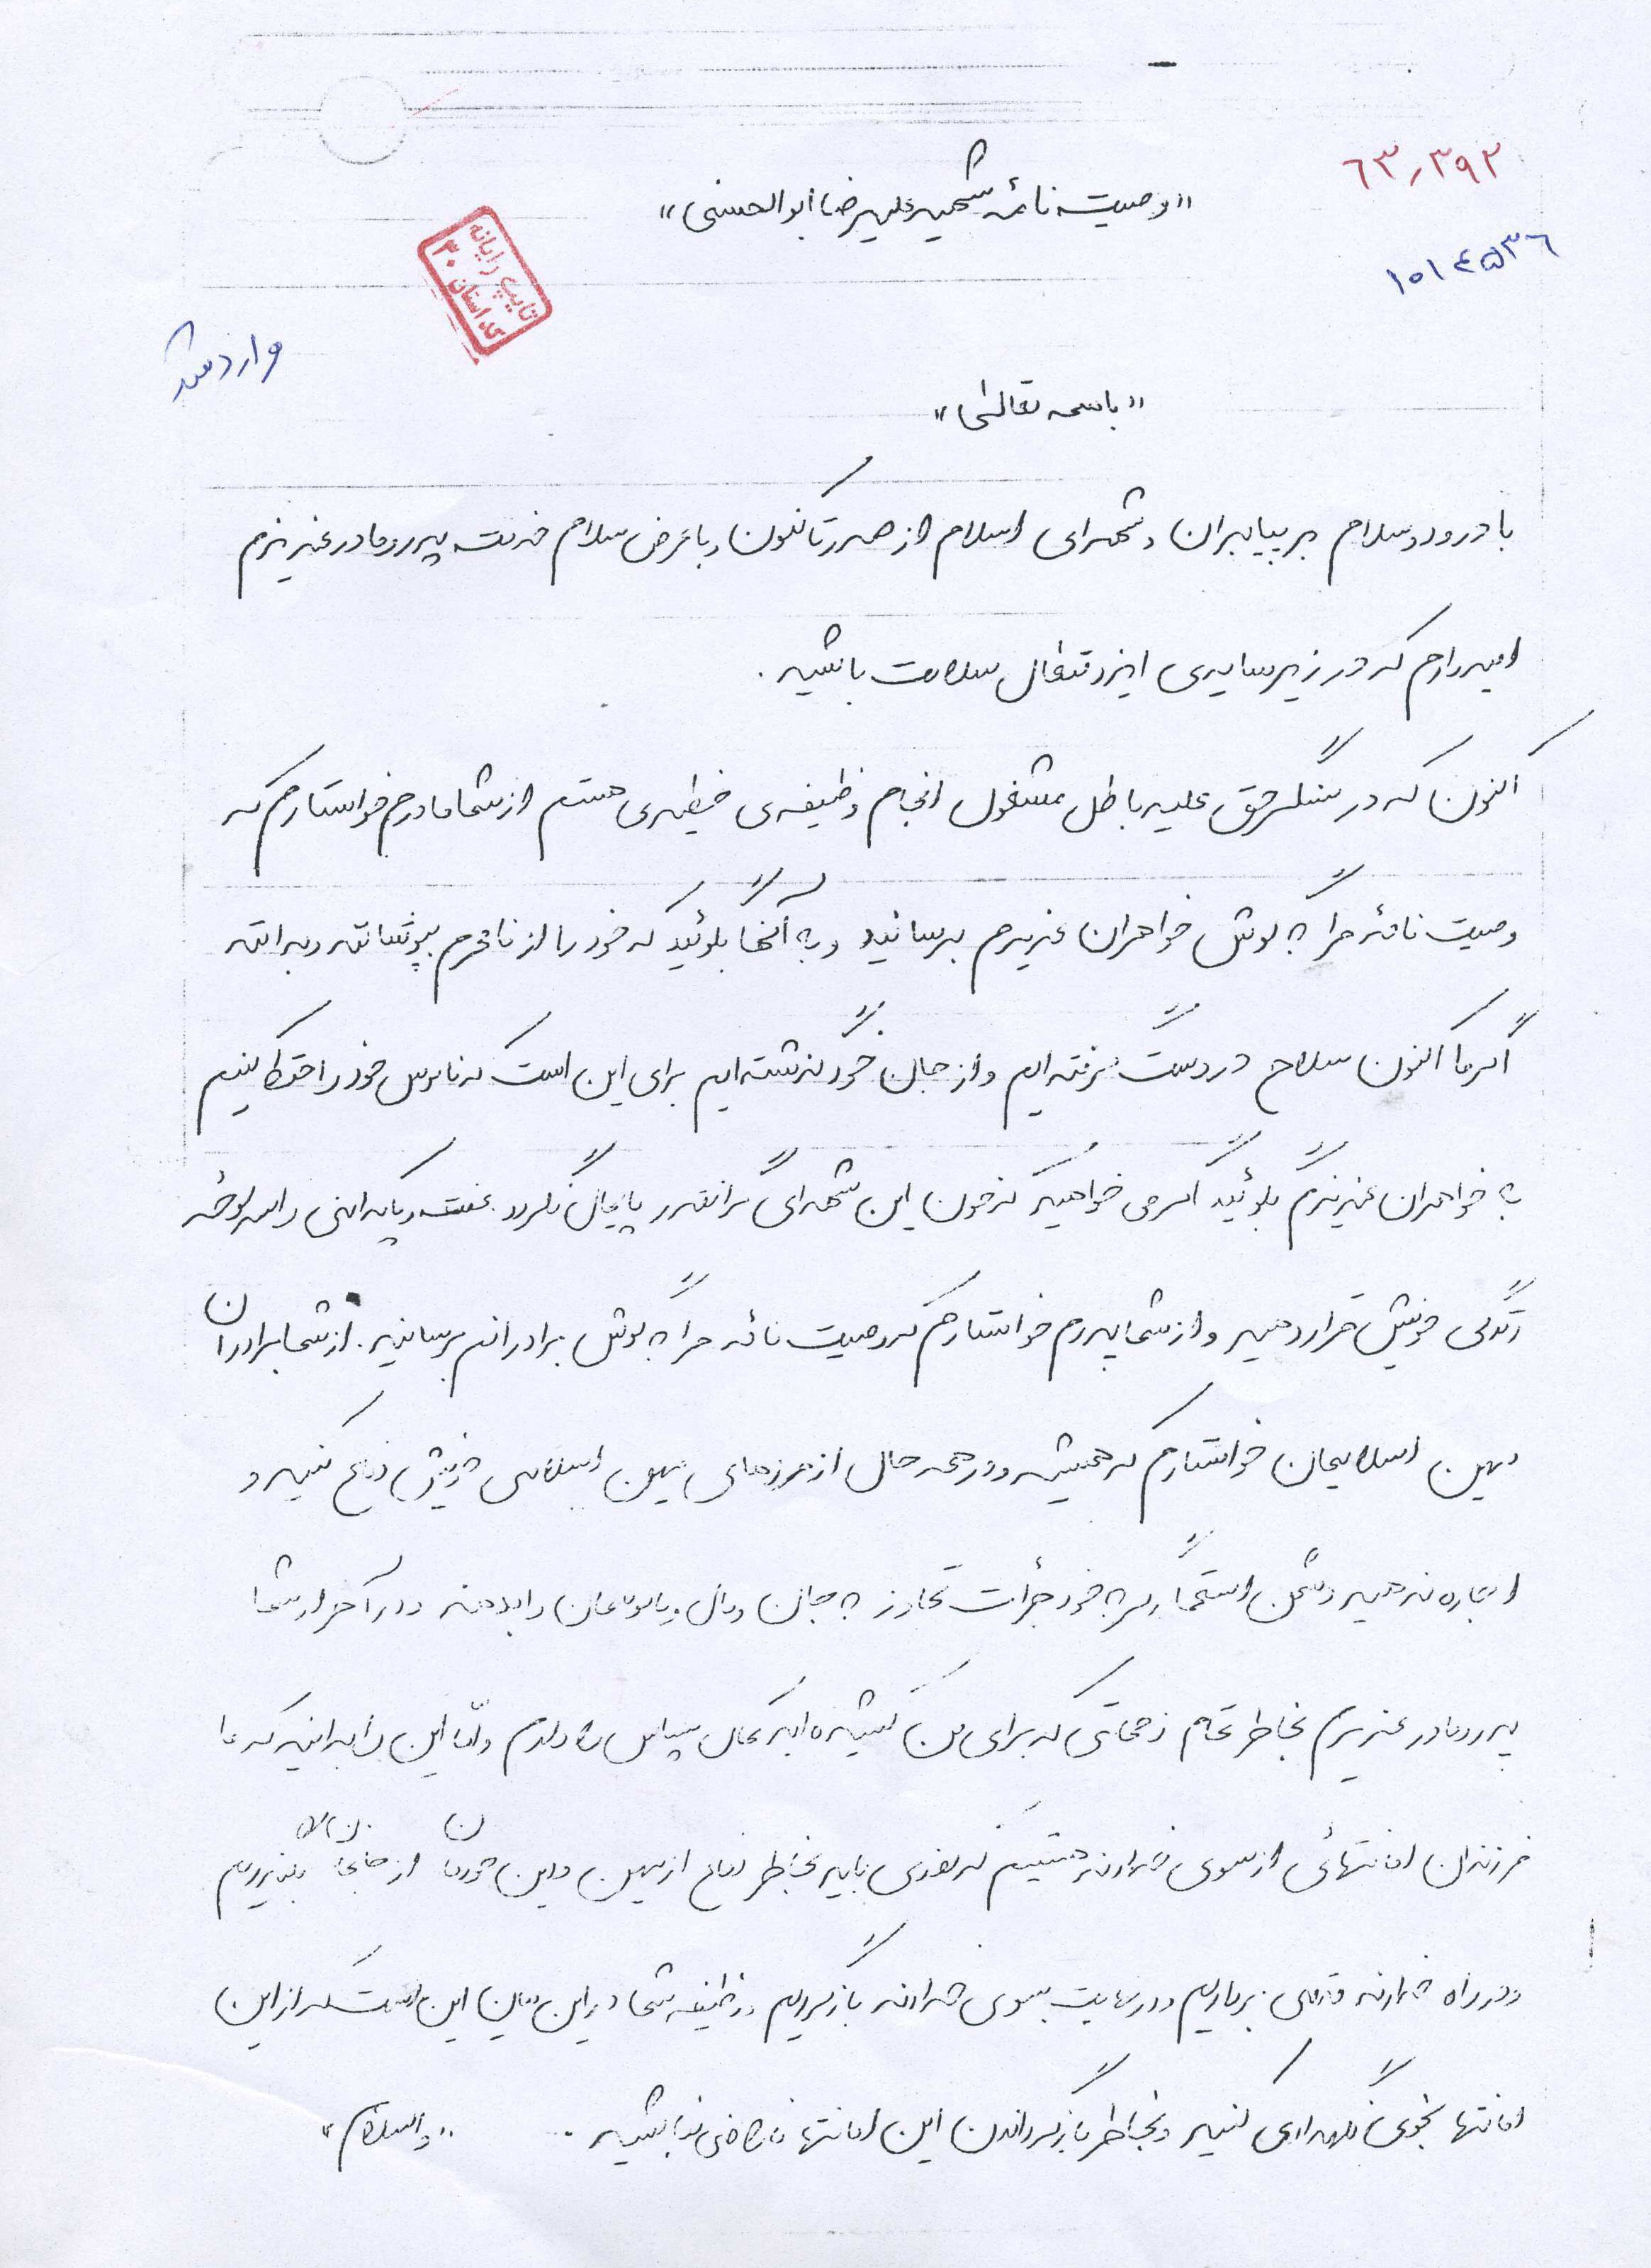 ۶۳٫۳۹۲
«وصیت نامه شهید علیرضا ابوالحسنی»
۱۰۱۴۵۳۶
تایپ رایانه
ای استان ۳۰
وارد شد
«باسمه تعالی»
با درود و سلام بر پیامبران و شهدای اسلام از صدر تا کنون و با عرض سلام خدمت پدر و مادر عزیزم
امیدوارم که در زیر سایه‌ی ایزد متعال سلامت باشید.
اکنون که در سنگر حق علیه باطل مشغول انجام وظیفه‌ی خطیری هستم از شما مادرم خواستارم که
وصیت نامه مرا به گوش خواهران عزیزم برسانید و به آنها بگوئید که خود را از نامحرم بپوشانند و بدانند
اگر ما اکنون سلاح در دست گرفته‌ایم و از جان خود گذشته‌ایم برای این است که ناموس خود را حفظ کنیم
به خواهران عزیزم بگوئید اگر می خواهید که خون این شهدای گرانقدر پایمال نگردد عفت و پاکدامنی را سرلوحه
زندگی خویش قرار دهید و از شما پدرم خواستارم که وصیت نامه مرا به گوش برادرانم برسانید. از شما برادران
میهن اسلامیمان خواستارم که همیشه و در همه حال از مرزهای میهن اسلامی خویش دفاع کنید و
اجازه ندهید دشمن استعمارگر به خود جرأت تجاوز به جان و مال و ناموسمان را بدهد و در آخر از شما
پدر و مادر عزیزم بخاطر تمام زحماتی که برای من کشیده‌اید کمال سپاس را دارم و امّا این را بدانید که ما
فرزندان امانتهائی از سوی خداوند هستیم که روزی باید بخاطر دفاع از میهن و دین خودمان از جانمان بگذریم
و در راه خداوند قدمی برداریم و در نهایت بسوی خداوند بازگردیم و وظیفه شما در این میان این است که از این
امانتها بخوبی نگهداری کنید و بخاطر بازگرداندن این امانتها ناراضی نباشید. «والسلام»